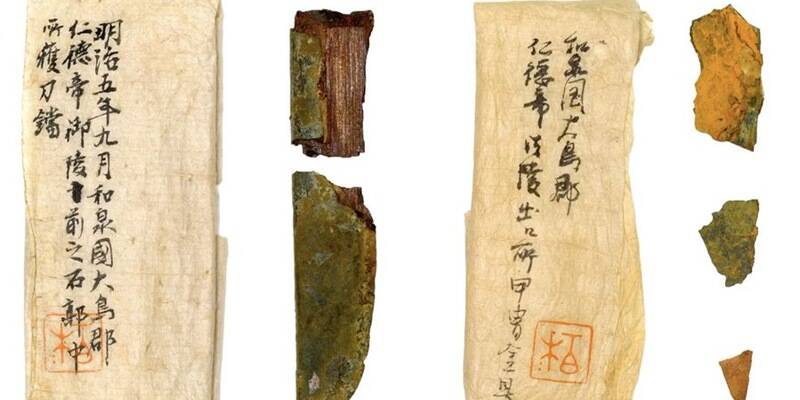 明治五年九月和泉國大鳥郡
仁徳帝御陵前之石郭中
所獲刀鐺
栢
和泉国大鳥郡
仁徳帝御陵出所甲冑金具
栢